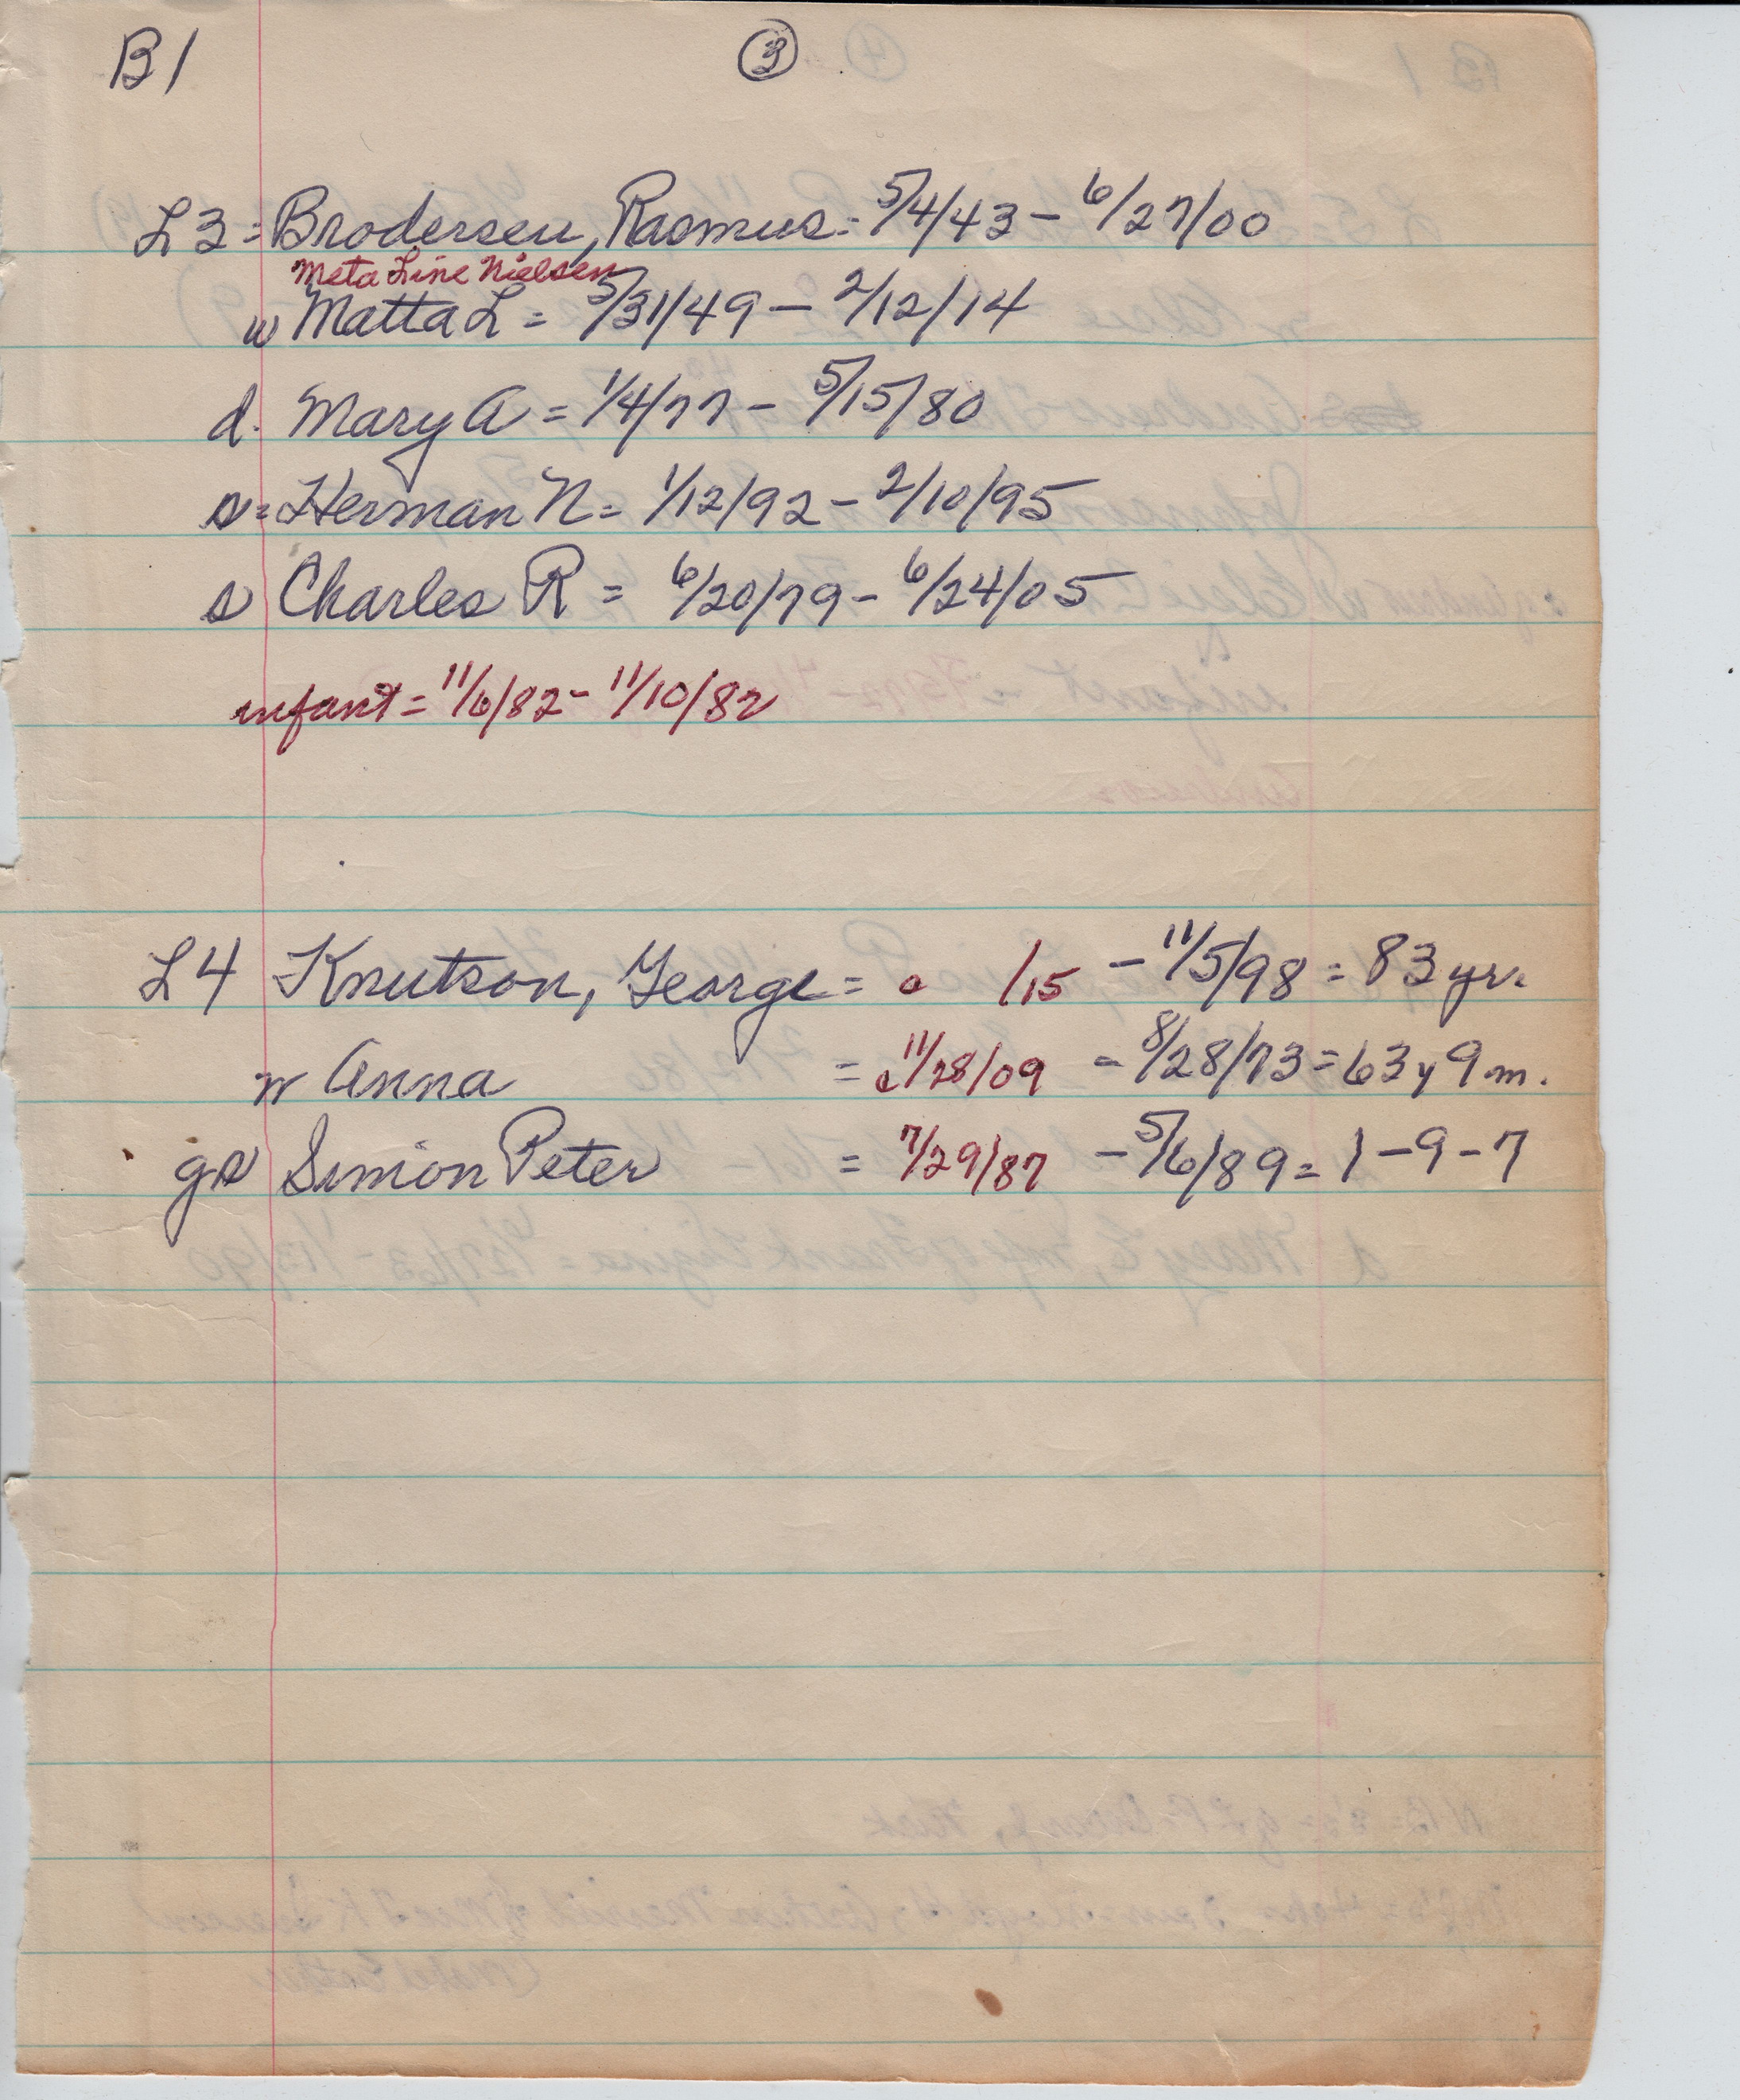 B1 ③
L3 = Brodersen, Rasmus = 5/4/43 - 6/27/00
Meta Line Nielsen
w Matta L = 5/31/49 - 2/12/14
d. Mary A = 1/4/77 - 5/15/80
s = Herman N = 1/12/92 - 2/10/95
s Charles R = 6/20/79 - 6/24/05
infant = 11/6/82 - 11/10/82
L4 Knutson, George = c /15 - 11/5/98 = 83 yr.
w Anna = c 11/28/09 - 8/28/73 = 63 y 9 m.
gs Simon Peter = 7/29/87 - 5/6/89 = 1-9-7